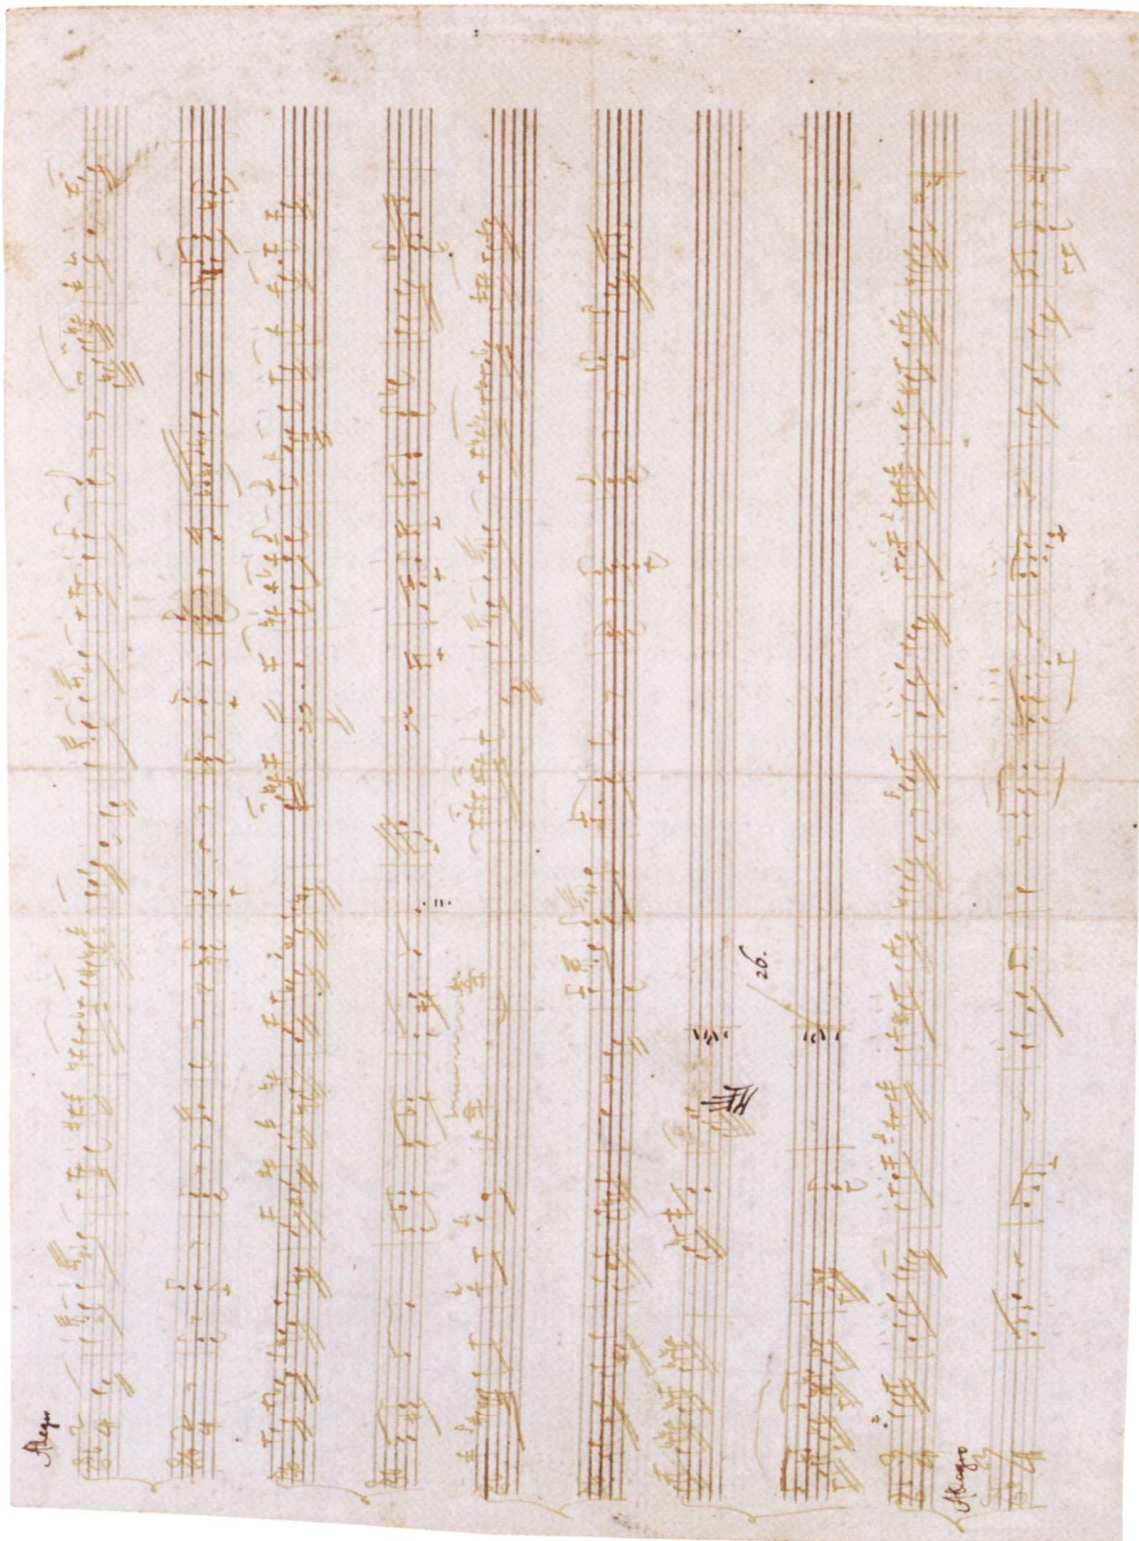 Allegro
26.
Allegro